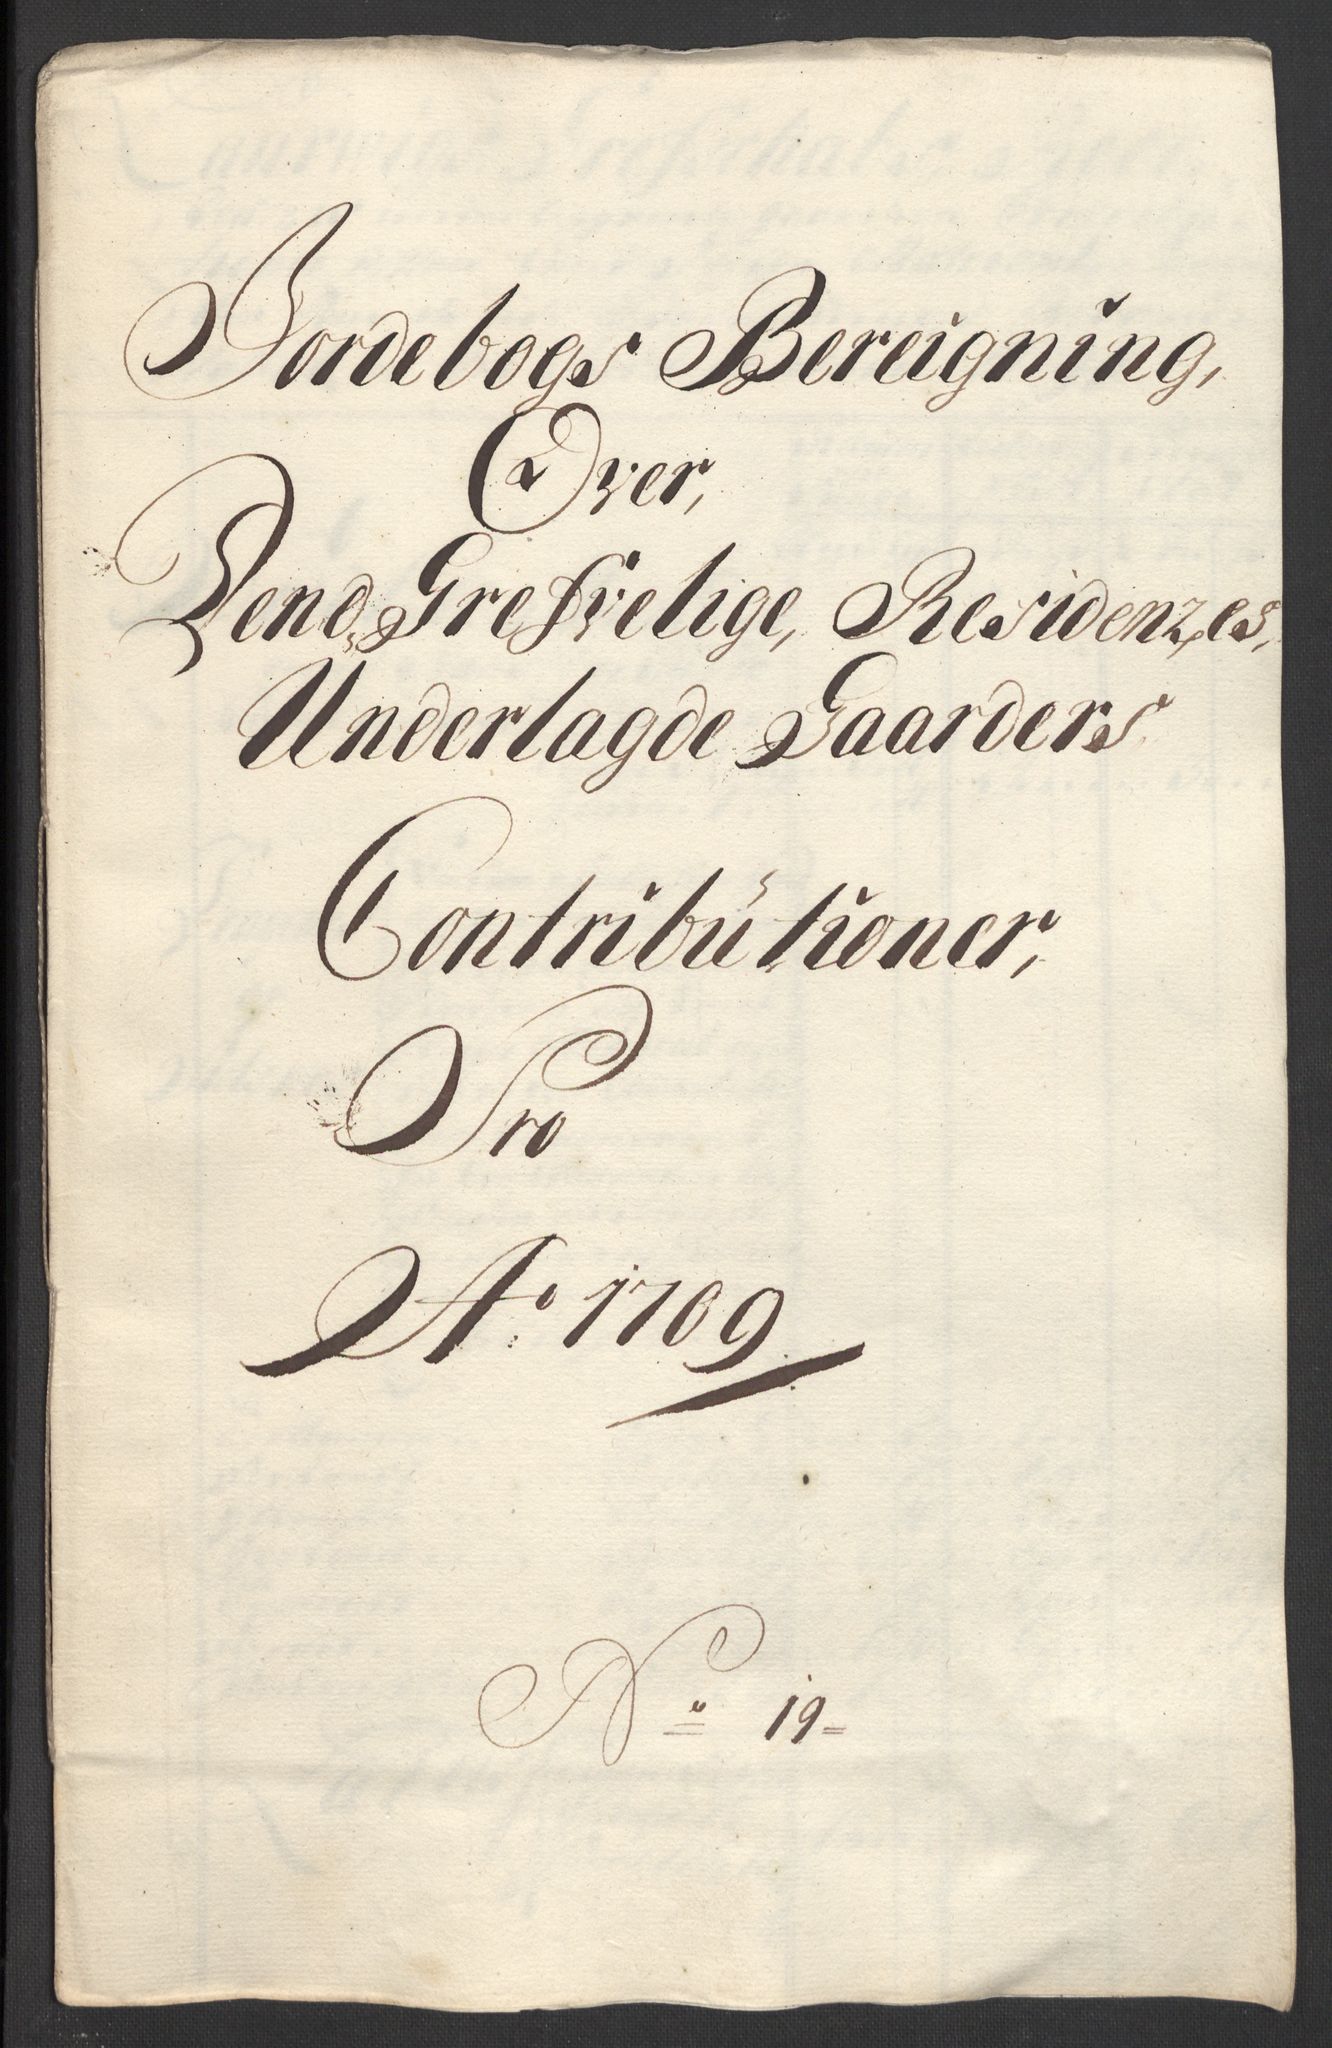 Jordebogs Bereigning,
Over,
Dend Grefvelige, Residenzes,
Underlagde Gaarders
Contributioner,
Pro
Ao 1709
No 19